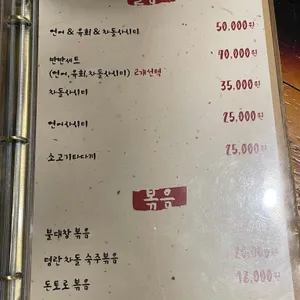 연어 & 육회 & 차돌사시미 50,000원
반반세트 40,000원
(연어, 육회, 차돌사시미) 2개선택
차돌사시미 35,000원
연어사시미 25,000원
소고기타다끼 25,000원
볶음
불대창 볶음
명란 차돌 숙주볶음
돈토로 볶음 18,000원